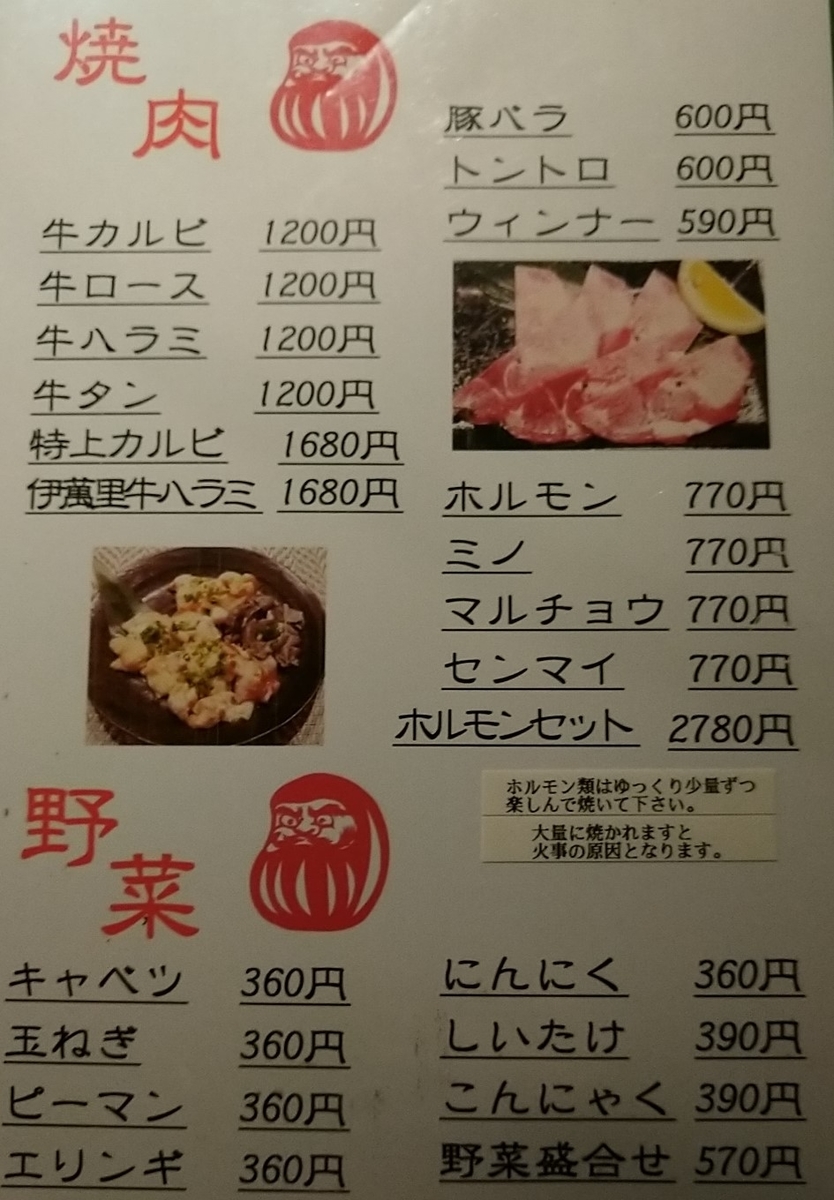 焼肉
牛カルビ 1200円
牛ロース 1200円
牛ハラミ 1200円
牛タン 1200円
特上カルビ 1680円
伊萬里牛ハラミ 1680円
豚バラ 600円
トントロ 600円
ウィンナー 590円
ホルモン 770円
ミノ 770円
マルチョウ 770円
センマイ 770円
ホルモンセット 2780円
ホルモン類はゆっくり少量ずつ
楽しんで焼いて下さい。
大量に焼かれますと
火事の原因となります。
野菜
キャベツ 360円
玉ねぎ 360円
ピーマン 360円
エリンギ 360円
にんにく 360円
しいたけ 390円
こんにゃく 390円
野菜盛合せ 570円